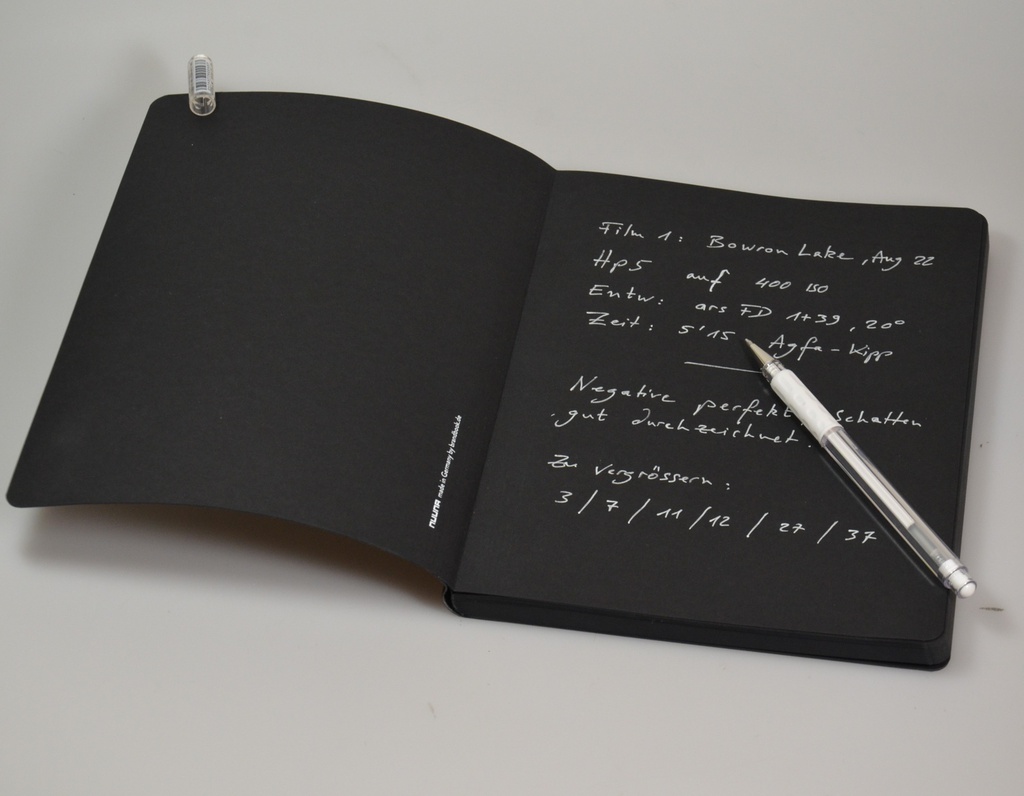 nuuna made in Germany by brandbook.de
Film 1: Bowron Lake, Aug 22
Hp5 auf 400 ISO
Entw: ars FD 1+39, 20°
Zeit: 5'15 Agfa-Kipp
Negative perfekt, Schatten
gut durchzeichnet.
Zu vergrössern:
3 / 7 / 11 / 12 / 27 / 37